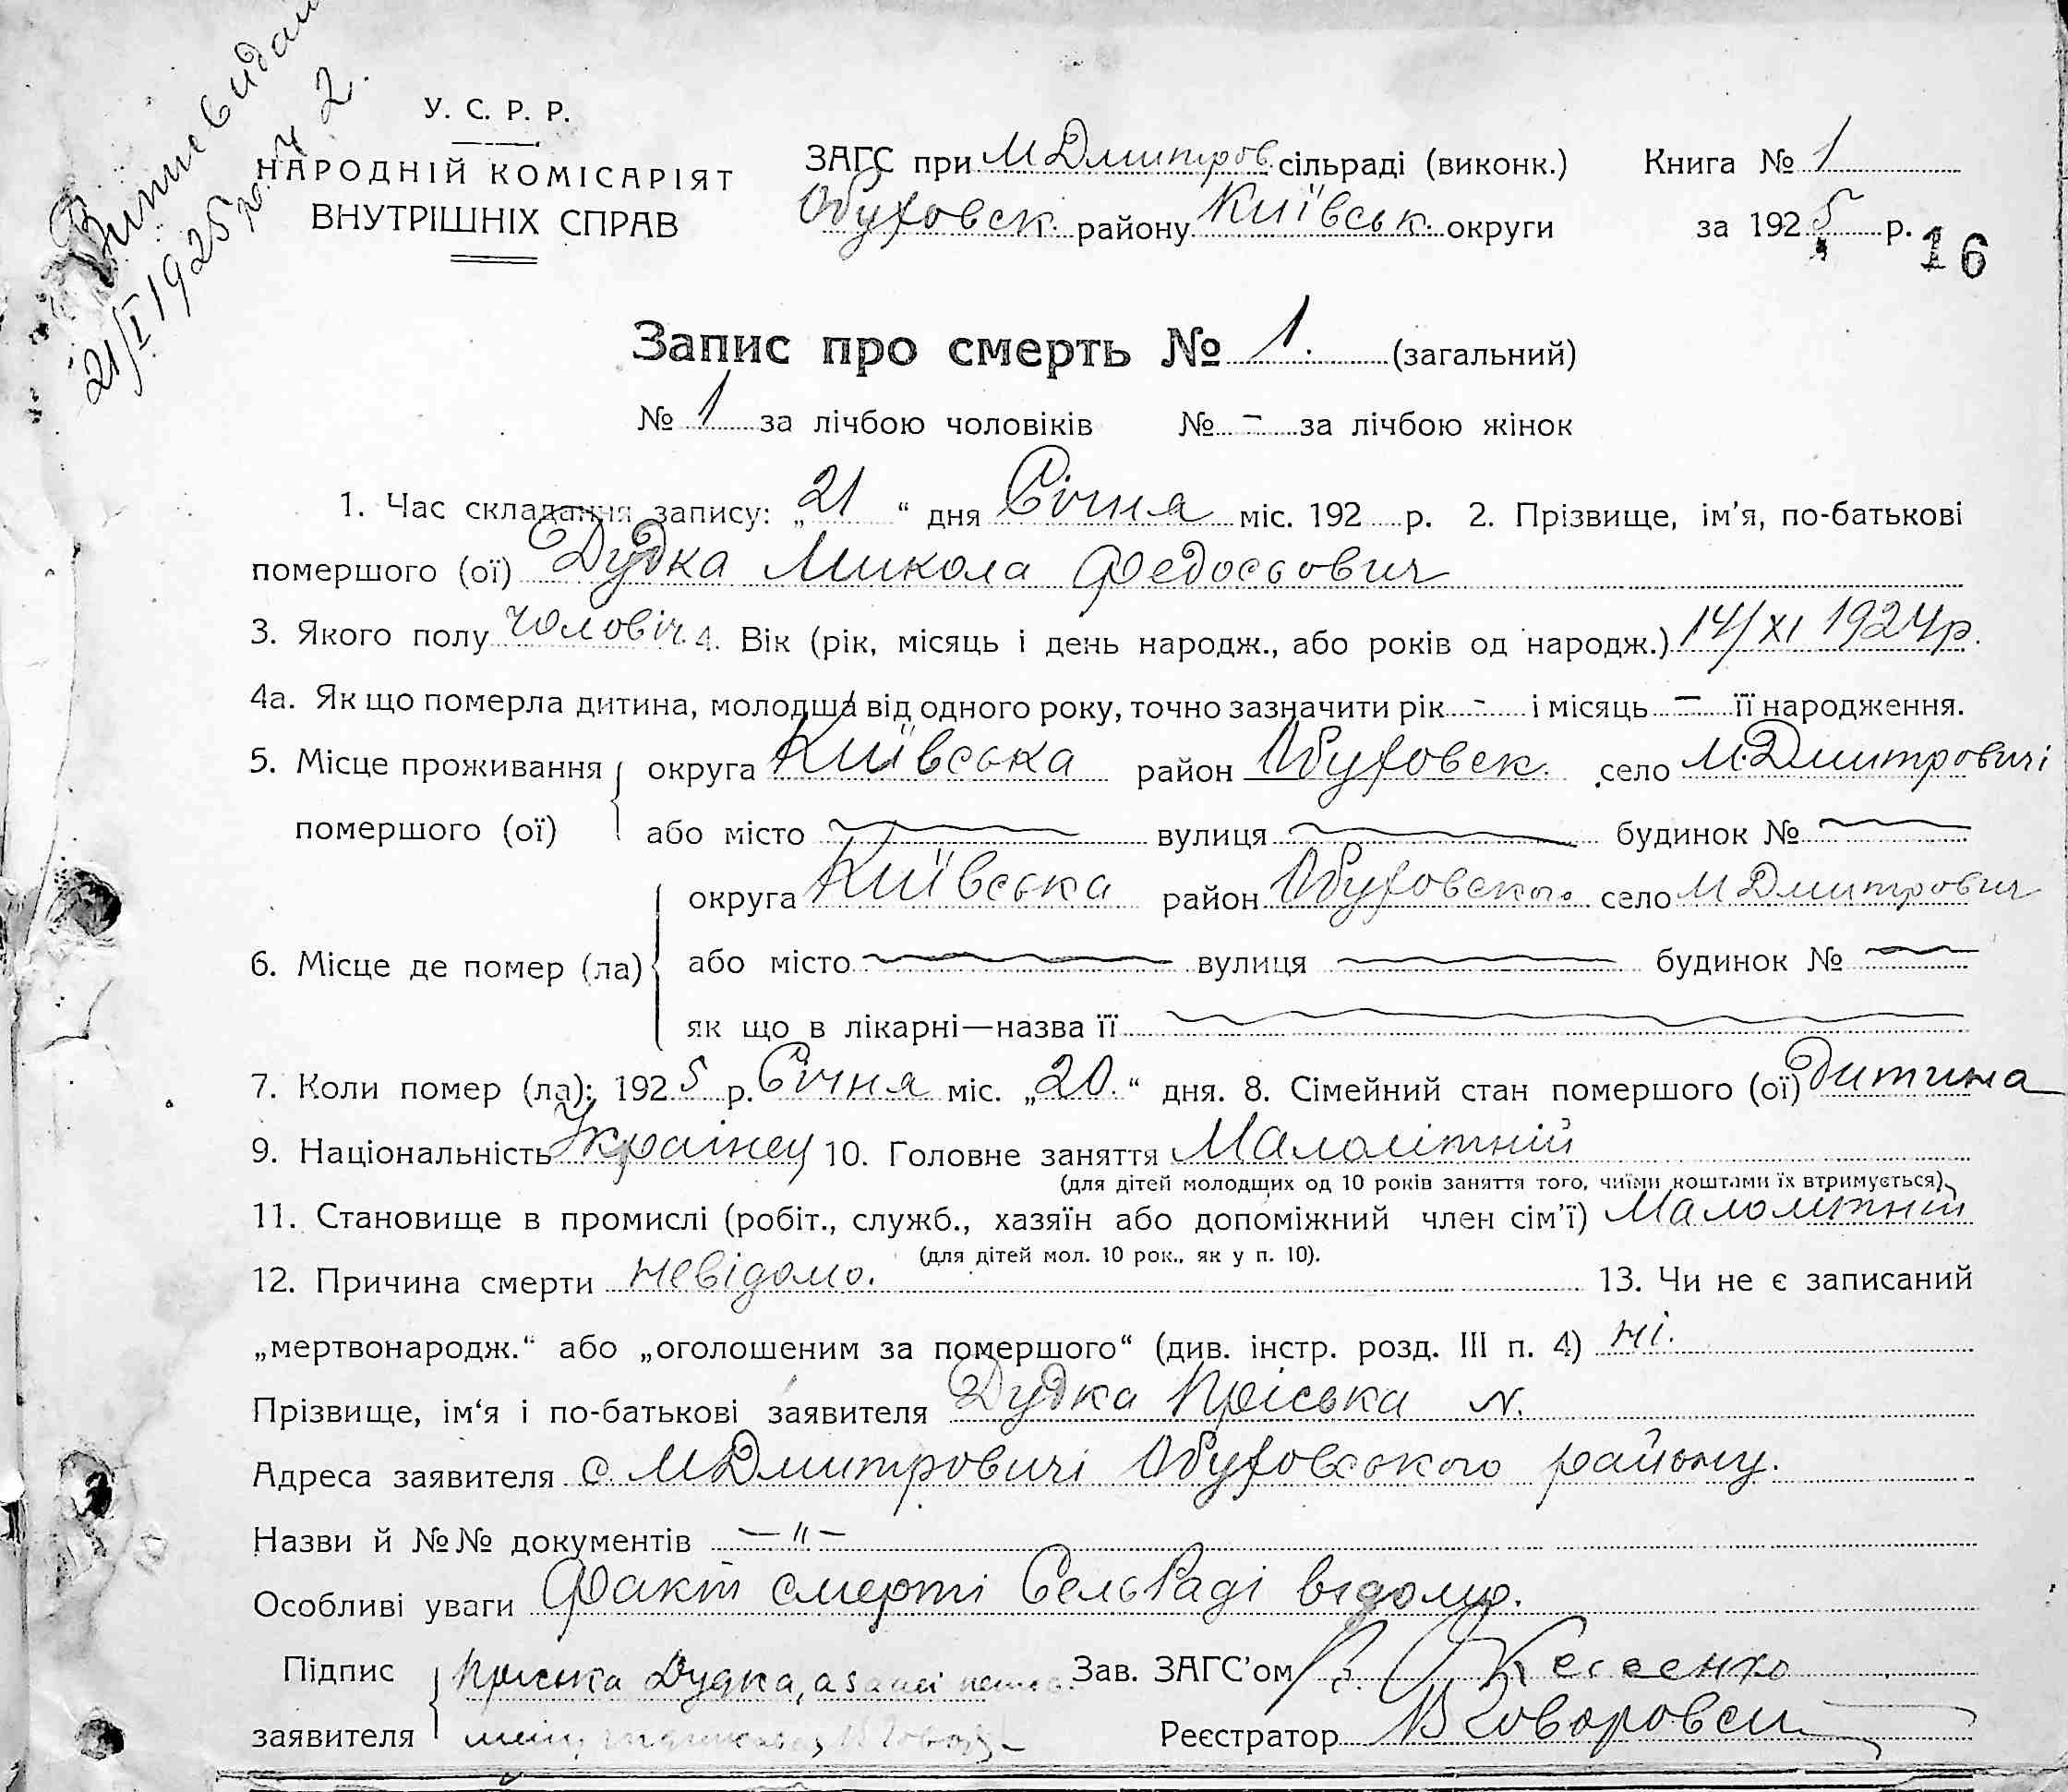 Витяг видан
21/I 1925 р. ч 2.
У. С. Р. Р.
НАРОДНІЙ КОМІСАРІЯТ
ВНУТРІШНІХ СПРАВ
ЗАГС при МДмитров. сільраді (виконк.)
Обуховськ. району Київськ. округи
Книга № 1
за 1925 р.
16
Запис про смерть № 1. (загальний)
№ 1 за лічбою чоловіків № - за лічбою жінок
1. Час складання запису: „21“ дня Січня міс. 192 р. 2. Прізвище, ім’я, по-батькові
помершого (ої) Дудка Микола Федосьович
3. Якого полу чоловіч. 4. Вік (рік, місяць і день народж., або років од народж.) 14/XI 1924р.
4а. Як що померла дитина, молодша від одного року, точно зазначити рік - і місяць - її народження.
5. Місце проживання округа Київська район Обуховськ. село М.Дмитровичі
помершого (ої) або місто вулиця будинок №
округа Київська район Обуховського село МДмитрович
6. Місце де помер (ла) або місто вулиця будинок №
як що в лікарні—назва її
7. Коли помер (ла): 1925 р. Січня міс. „20.“ дня. 8. Сімейний стан помершого (ої) дитина
9. Національність Українец 10. Головне заняття Малолітній
(для дітей молодщих од 10 років заняття того, чиїми коштами їх втримується)
11. Становище в промислі (робіт., служб., хазяїн або допоміжний член сім’ї) Малолітній
(для дітей мол. 10 рок., як у п. 10).
12. Причина смерти невідомо. 13. Чи не є записаний
„мертвонародж.“ або „оголошеним за помершого“ (див. інстр. розд. III п. 4) ні.
Прізвище, ім‘я і по-батькові заявителя Дудка Пріська N.
Адреса заявителя с. МДмитровичі Обуховського району.
Назви й №№ документів — " —
Особливі уваги Факт смерті СельРаді відомо.
Підпис Пріська Дудка, а за неі Зав. ЗАГС’ом
заявителя Реєстратор